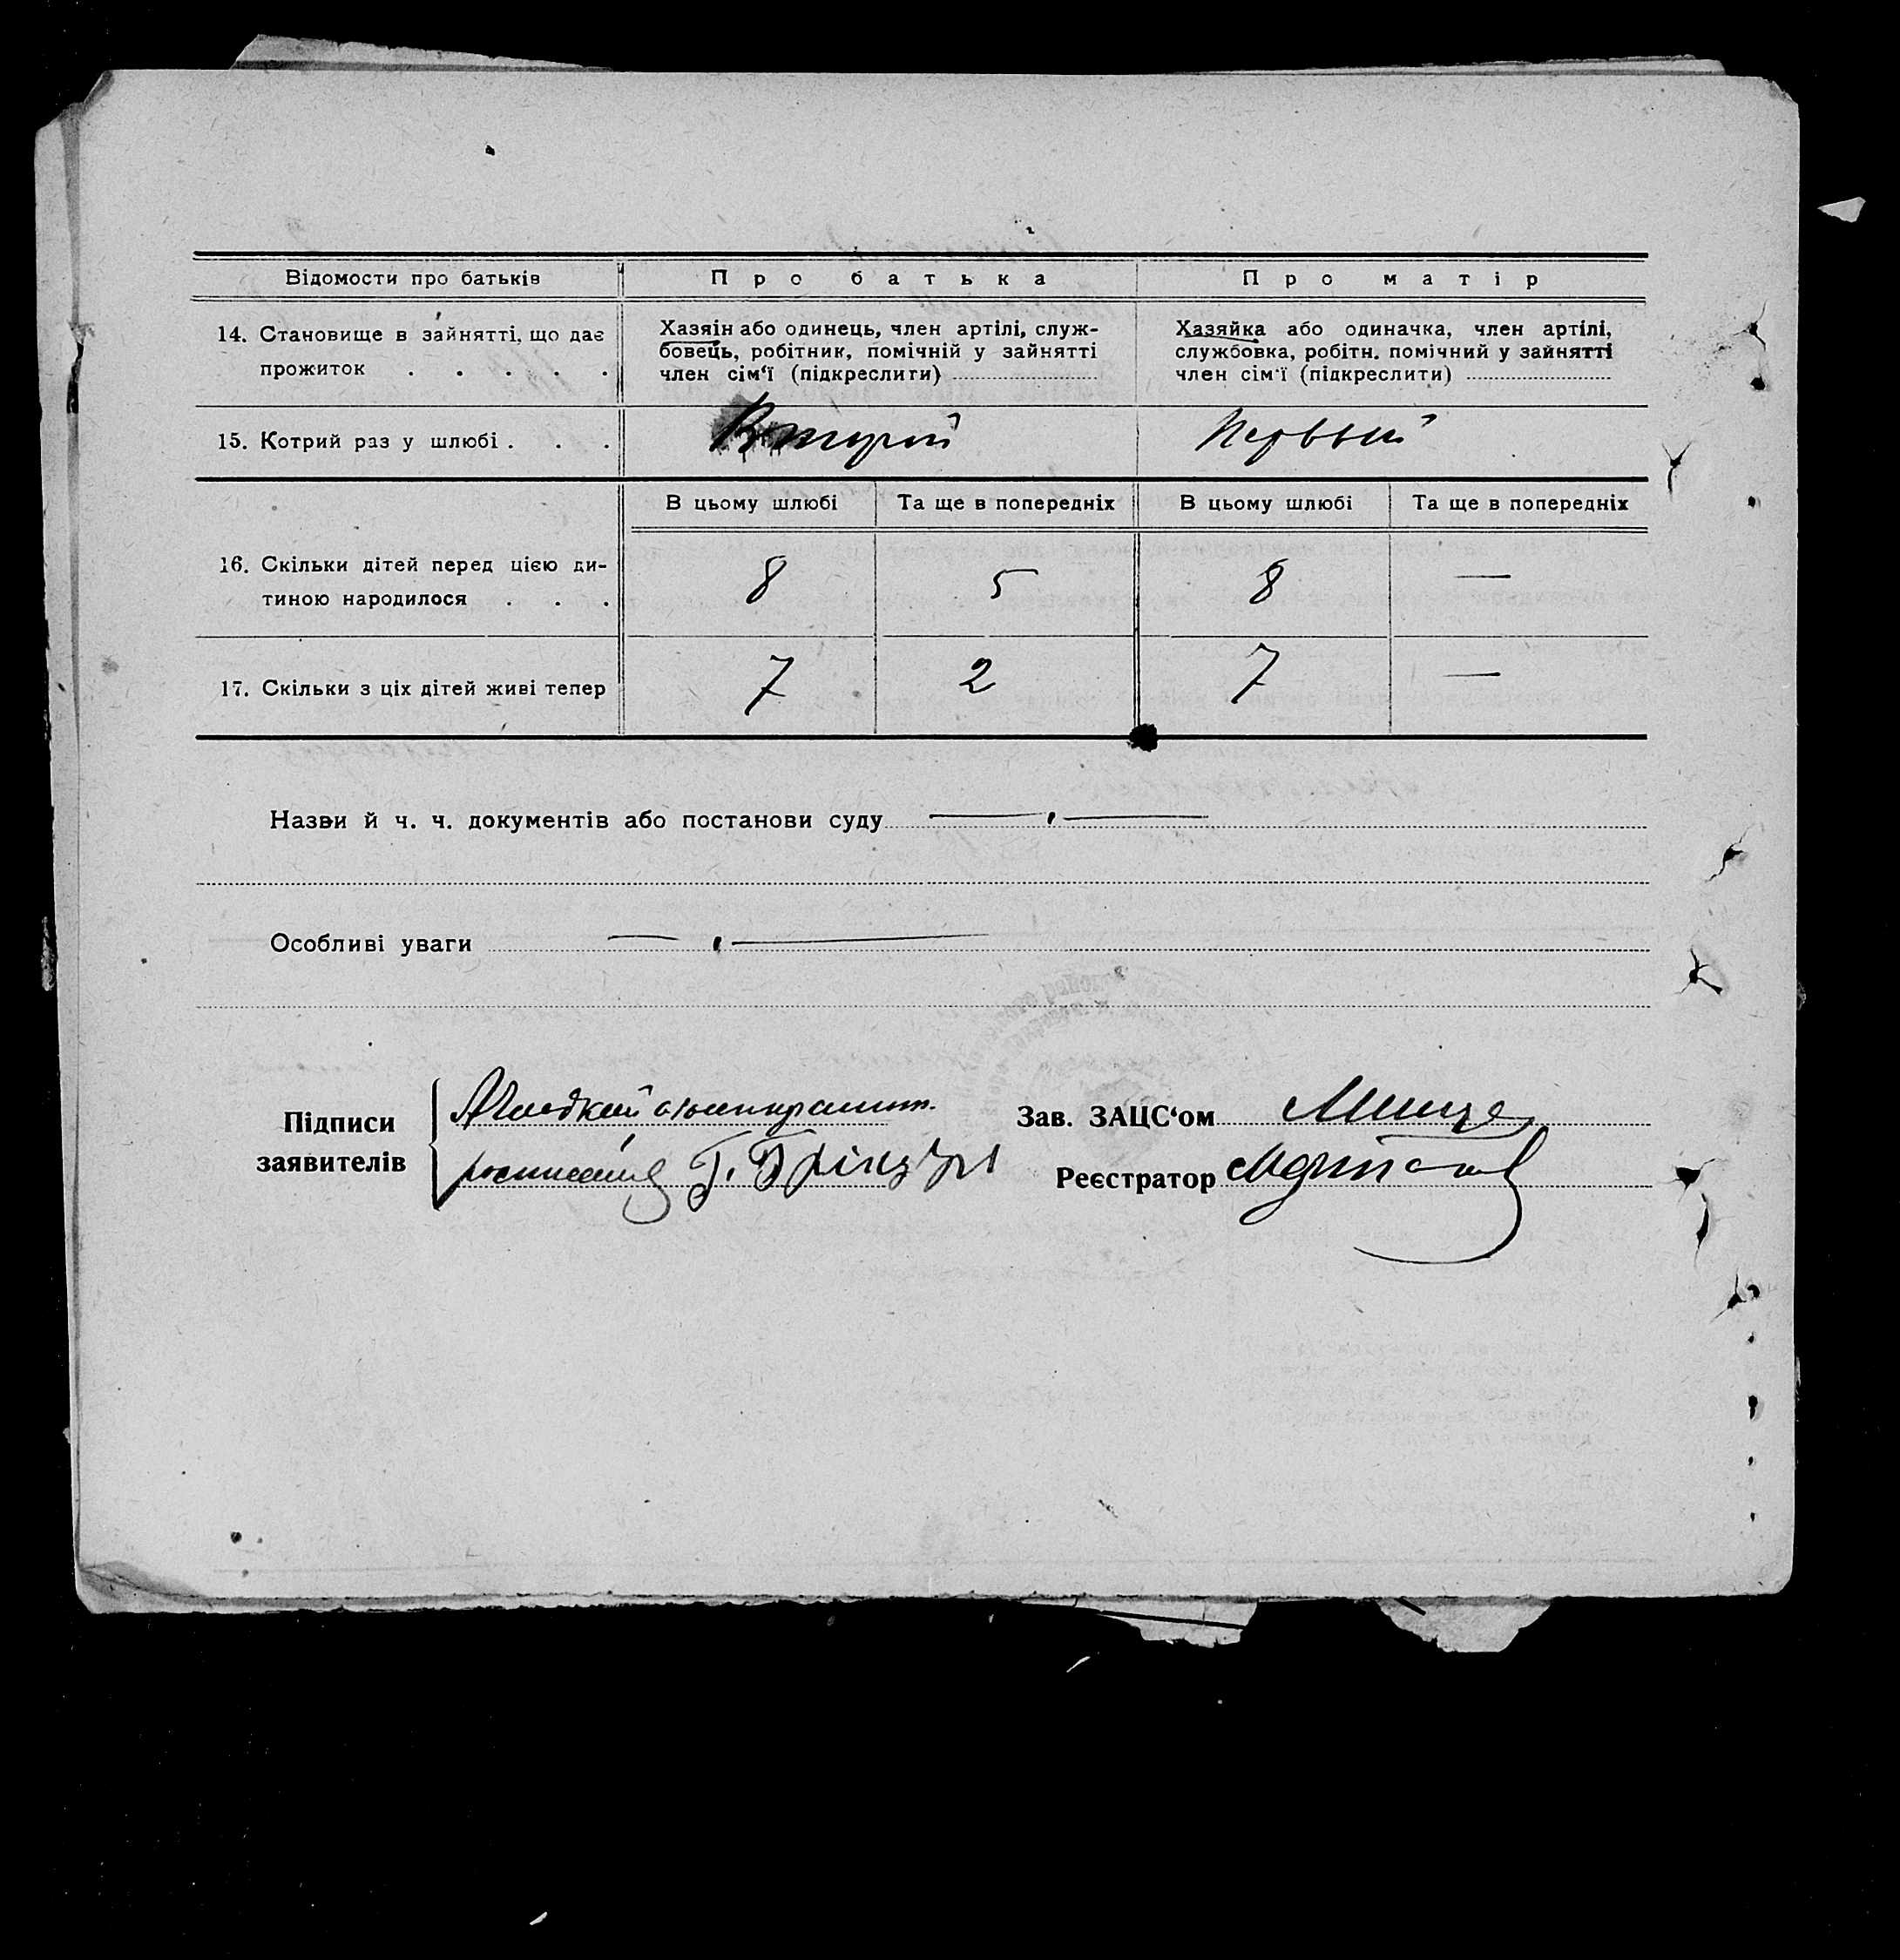 Відомости про батьків Про батька Про матір
14. Становище в зайнятті, що дає
прожиток . . . . .
Хазяін або одинець, член артілі, служ-
бовець, робітник, помічній у зайнятті
член сім‘ї (підкреслити)
Хазяйка або одиначка, член артілі,
службовка, робітн. помічний у зайнятті
член сім‘ї (підкреслити)
15. Котрий раз у шлюбі . . . Второй Первый
В цьому шлюбі Та ще в попередніх В цьому шлюбі Та ще в попередніх
16. Скільки дітей перед цією ди-
тиною народилося . . . 8 5 8 —
17. Скільки з ціх дітей живі тепер 7 2 7 —
Назви й ч. ч. документів або постанови суду
Особливі уваги
Підписи
заявителів
Г.
Зав. ЗАЦС‘ом
Реєстратор